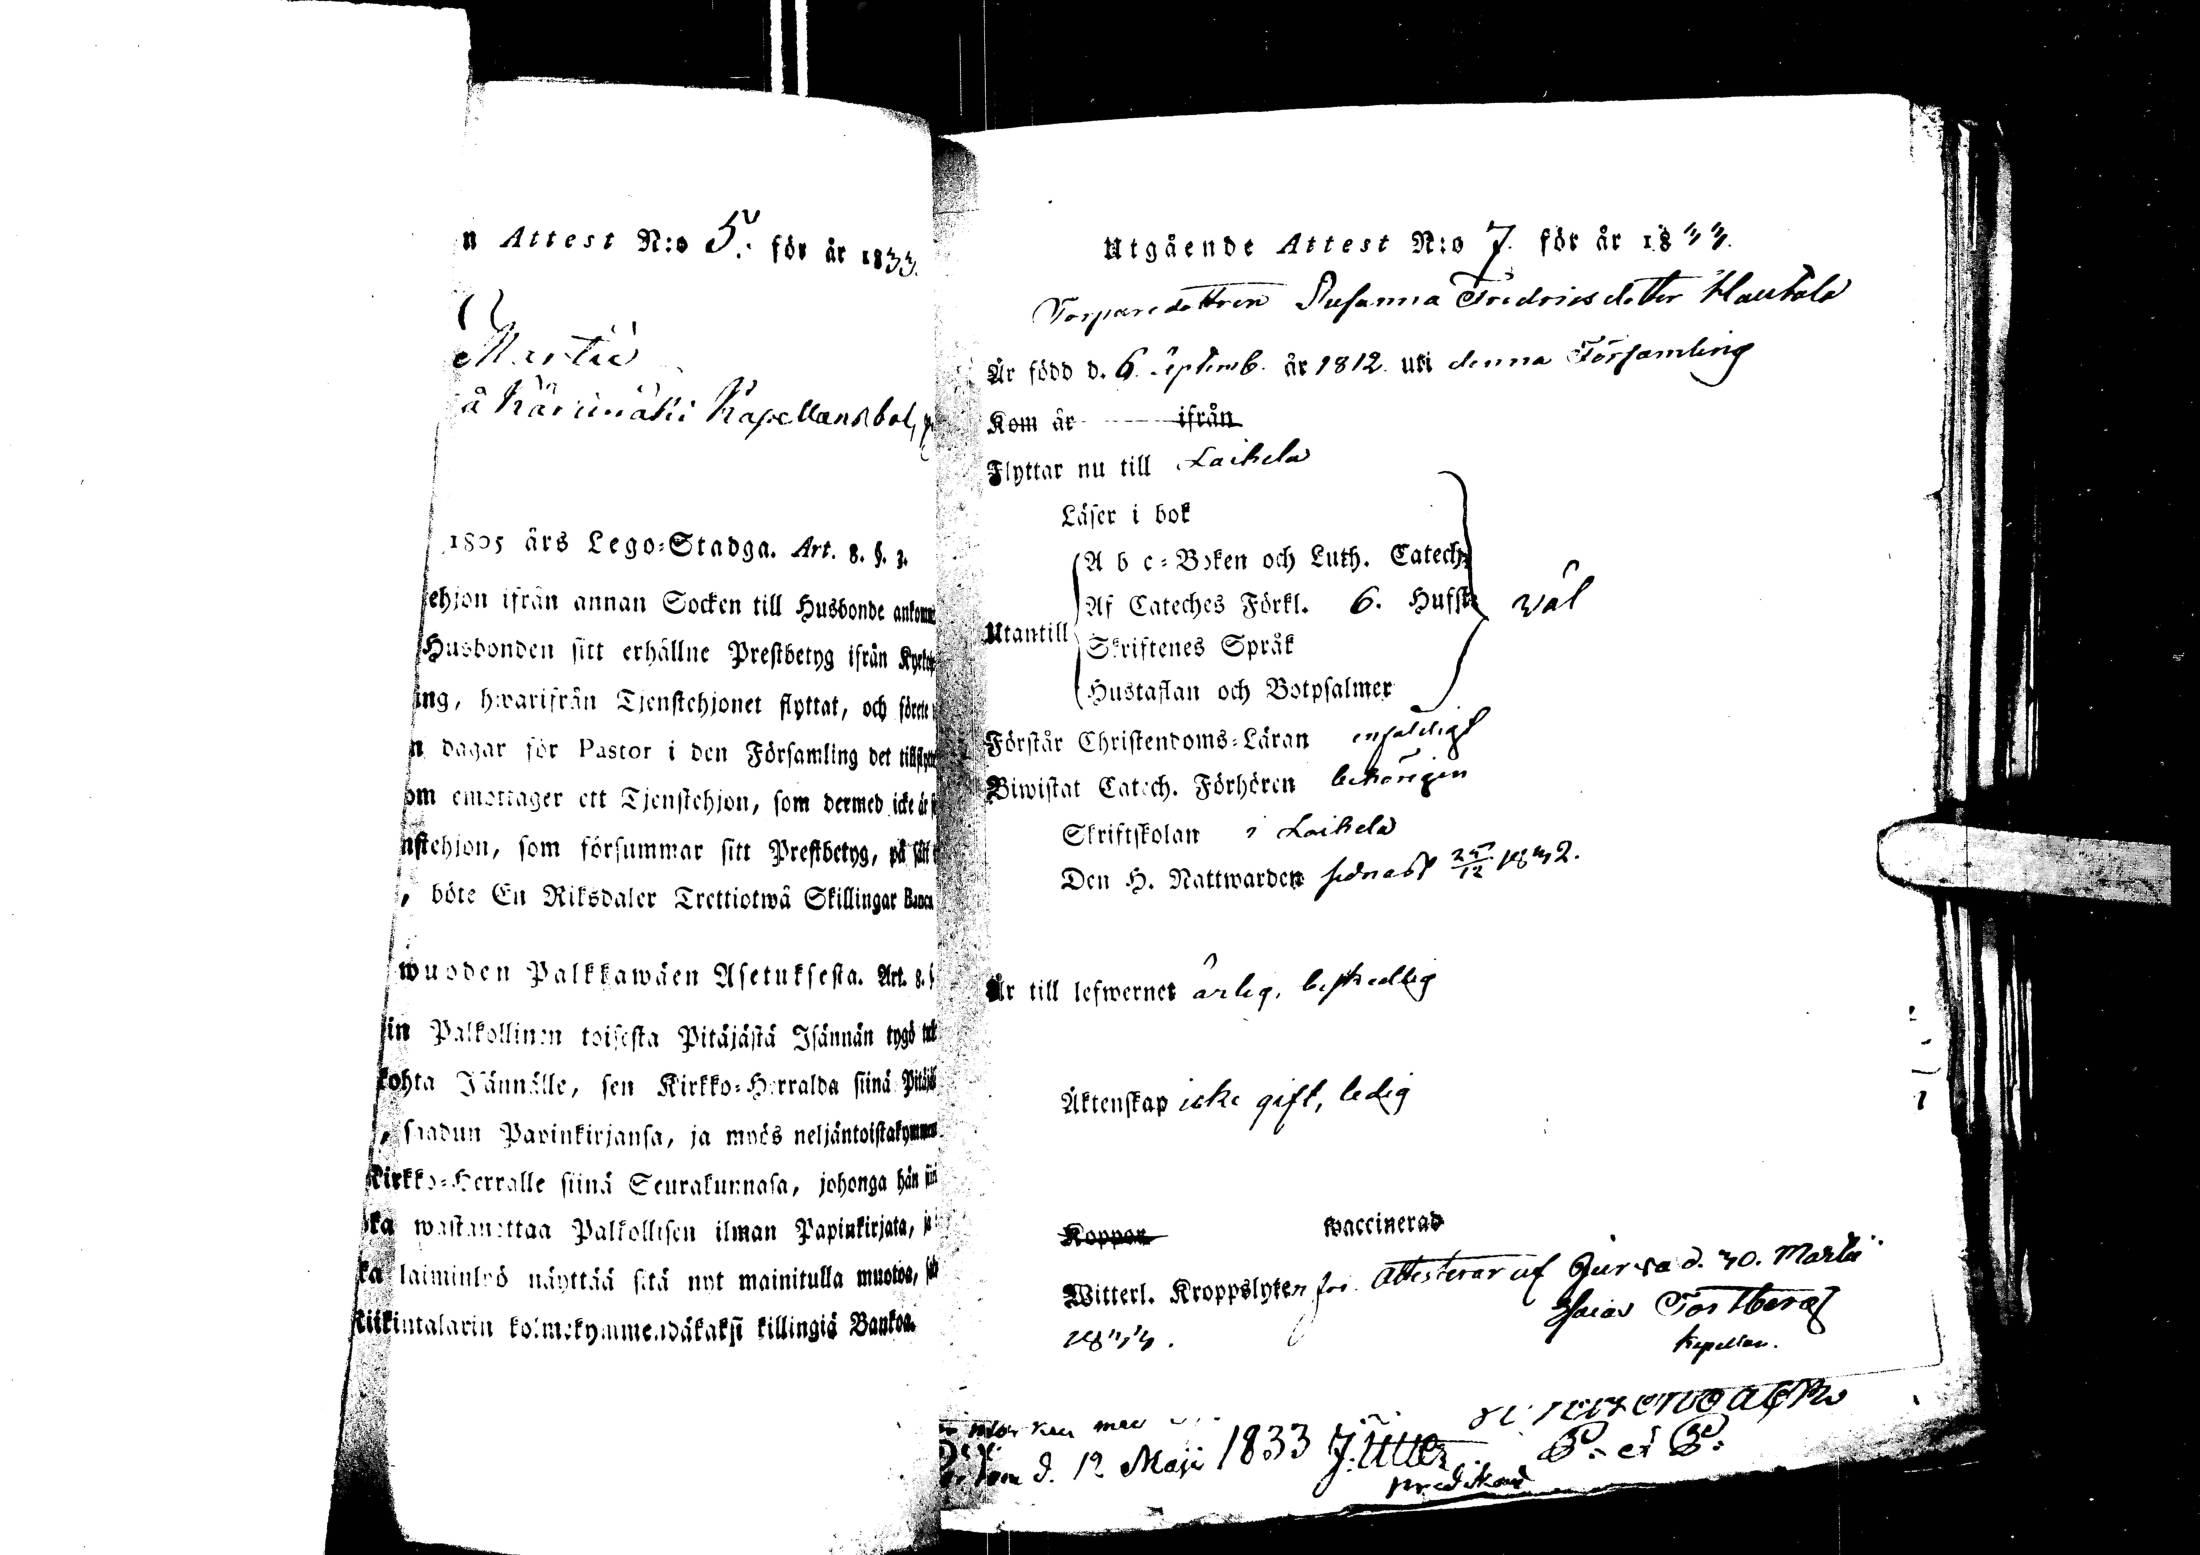 n Attest N:o 5. för år 1833.
Martii
å Kärimäki Kapellansbol,
1805 års Lego-Stadga. Art. 8. §. 3.
ehjon ifrån annan Socken till Husbonde ankomm
Husbonden sitt erhållne Prestbetyg ifrån Kyrko
ing, hwarifrån Tjenstehjonet flyttat, och förete
n dagar för Pastor i den Församling det tillflytt
om emottager ett Tjenstehjon, som dermed icke är
nstehjon, som försummar sitt Prestbetyg, på sätt
, böte En Riksdaler Trettiotwå Skillingar Banco
wuoden Palkkawäen Asetuksesta. Art. 8. §
in Palkollinen toisesta Pitäjästä Isännän tygö tul
kohta Isännälle, sen Kirkko-Herralda siinä Pitäjä
, saadun Papinkirjansa, ja myös neljäntoistakymmen
Kirkko-Herralle siinä Seurakunnasa, johonga hän
ka wastanottaa Palkollisen ilman Papinkirjata, ja
ka laiminlyö näyttää sitä nyt mainitulla muotoa,
Riikintalarin kolmekymmendäkaksi killingiä Bankoa.
Utgående Attest N:o 7. för år 1833.
Torparedottren Susanna Fredricsdotter Hautala
Är född d. 6 Septemb. år 1812. uti denna Församling
Kom år ifrån
Flyttar nu till Laihela
Läser i bok
A b c-Boken och Luth. Catech.
Af Cateches Förkl. 6. Hufst. wäl
Utantill
Skriftenes Språk
Hustaflan och Botpsalmer
Förstår Christendoms-Läran enfaldigt
Biwistat Catech. Förhören behörigen
Skriftskolan i Laihela
Den H. Nattwarden sednast 25/12 1832.
Är till lefwernet ärlig, beskedlig
Äktenskap icke gift, ledig
Koppor waccinerad
Witterl. Kroppslyten fri. Attesterar af Jurva d. 30. Martii
1833. Esaias Fortberg
Kapellan.
d. 12 Maji 1833 J. Utter
Predikant
P. et P.